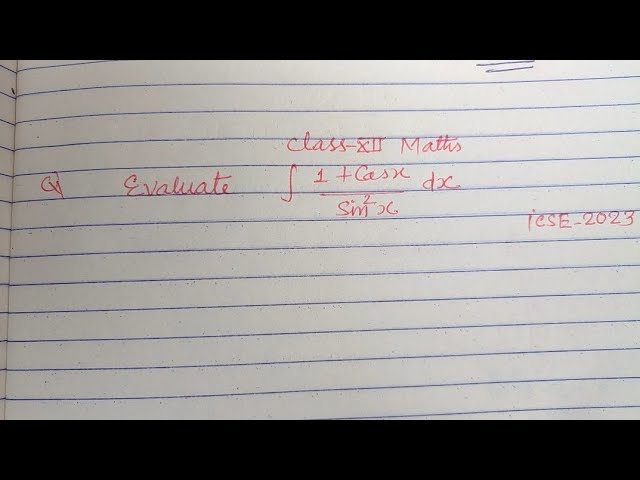 Class-XII Maths
Q) Evaluate ∫ (1 + Cosx)/(Sin²x) dx
ICSE-2023